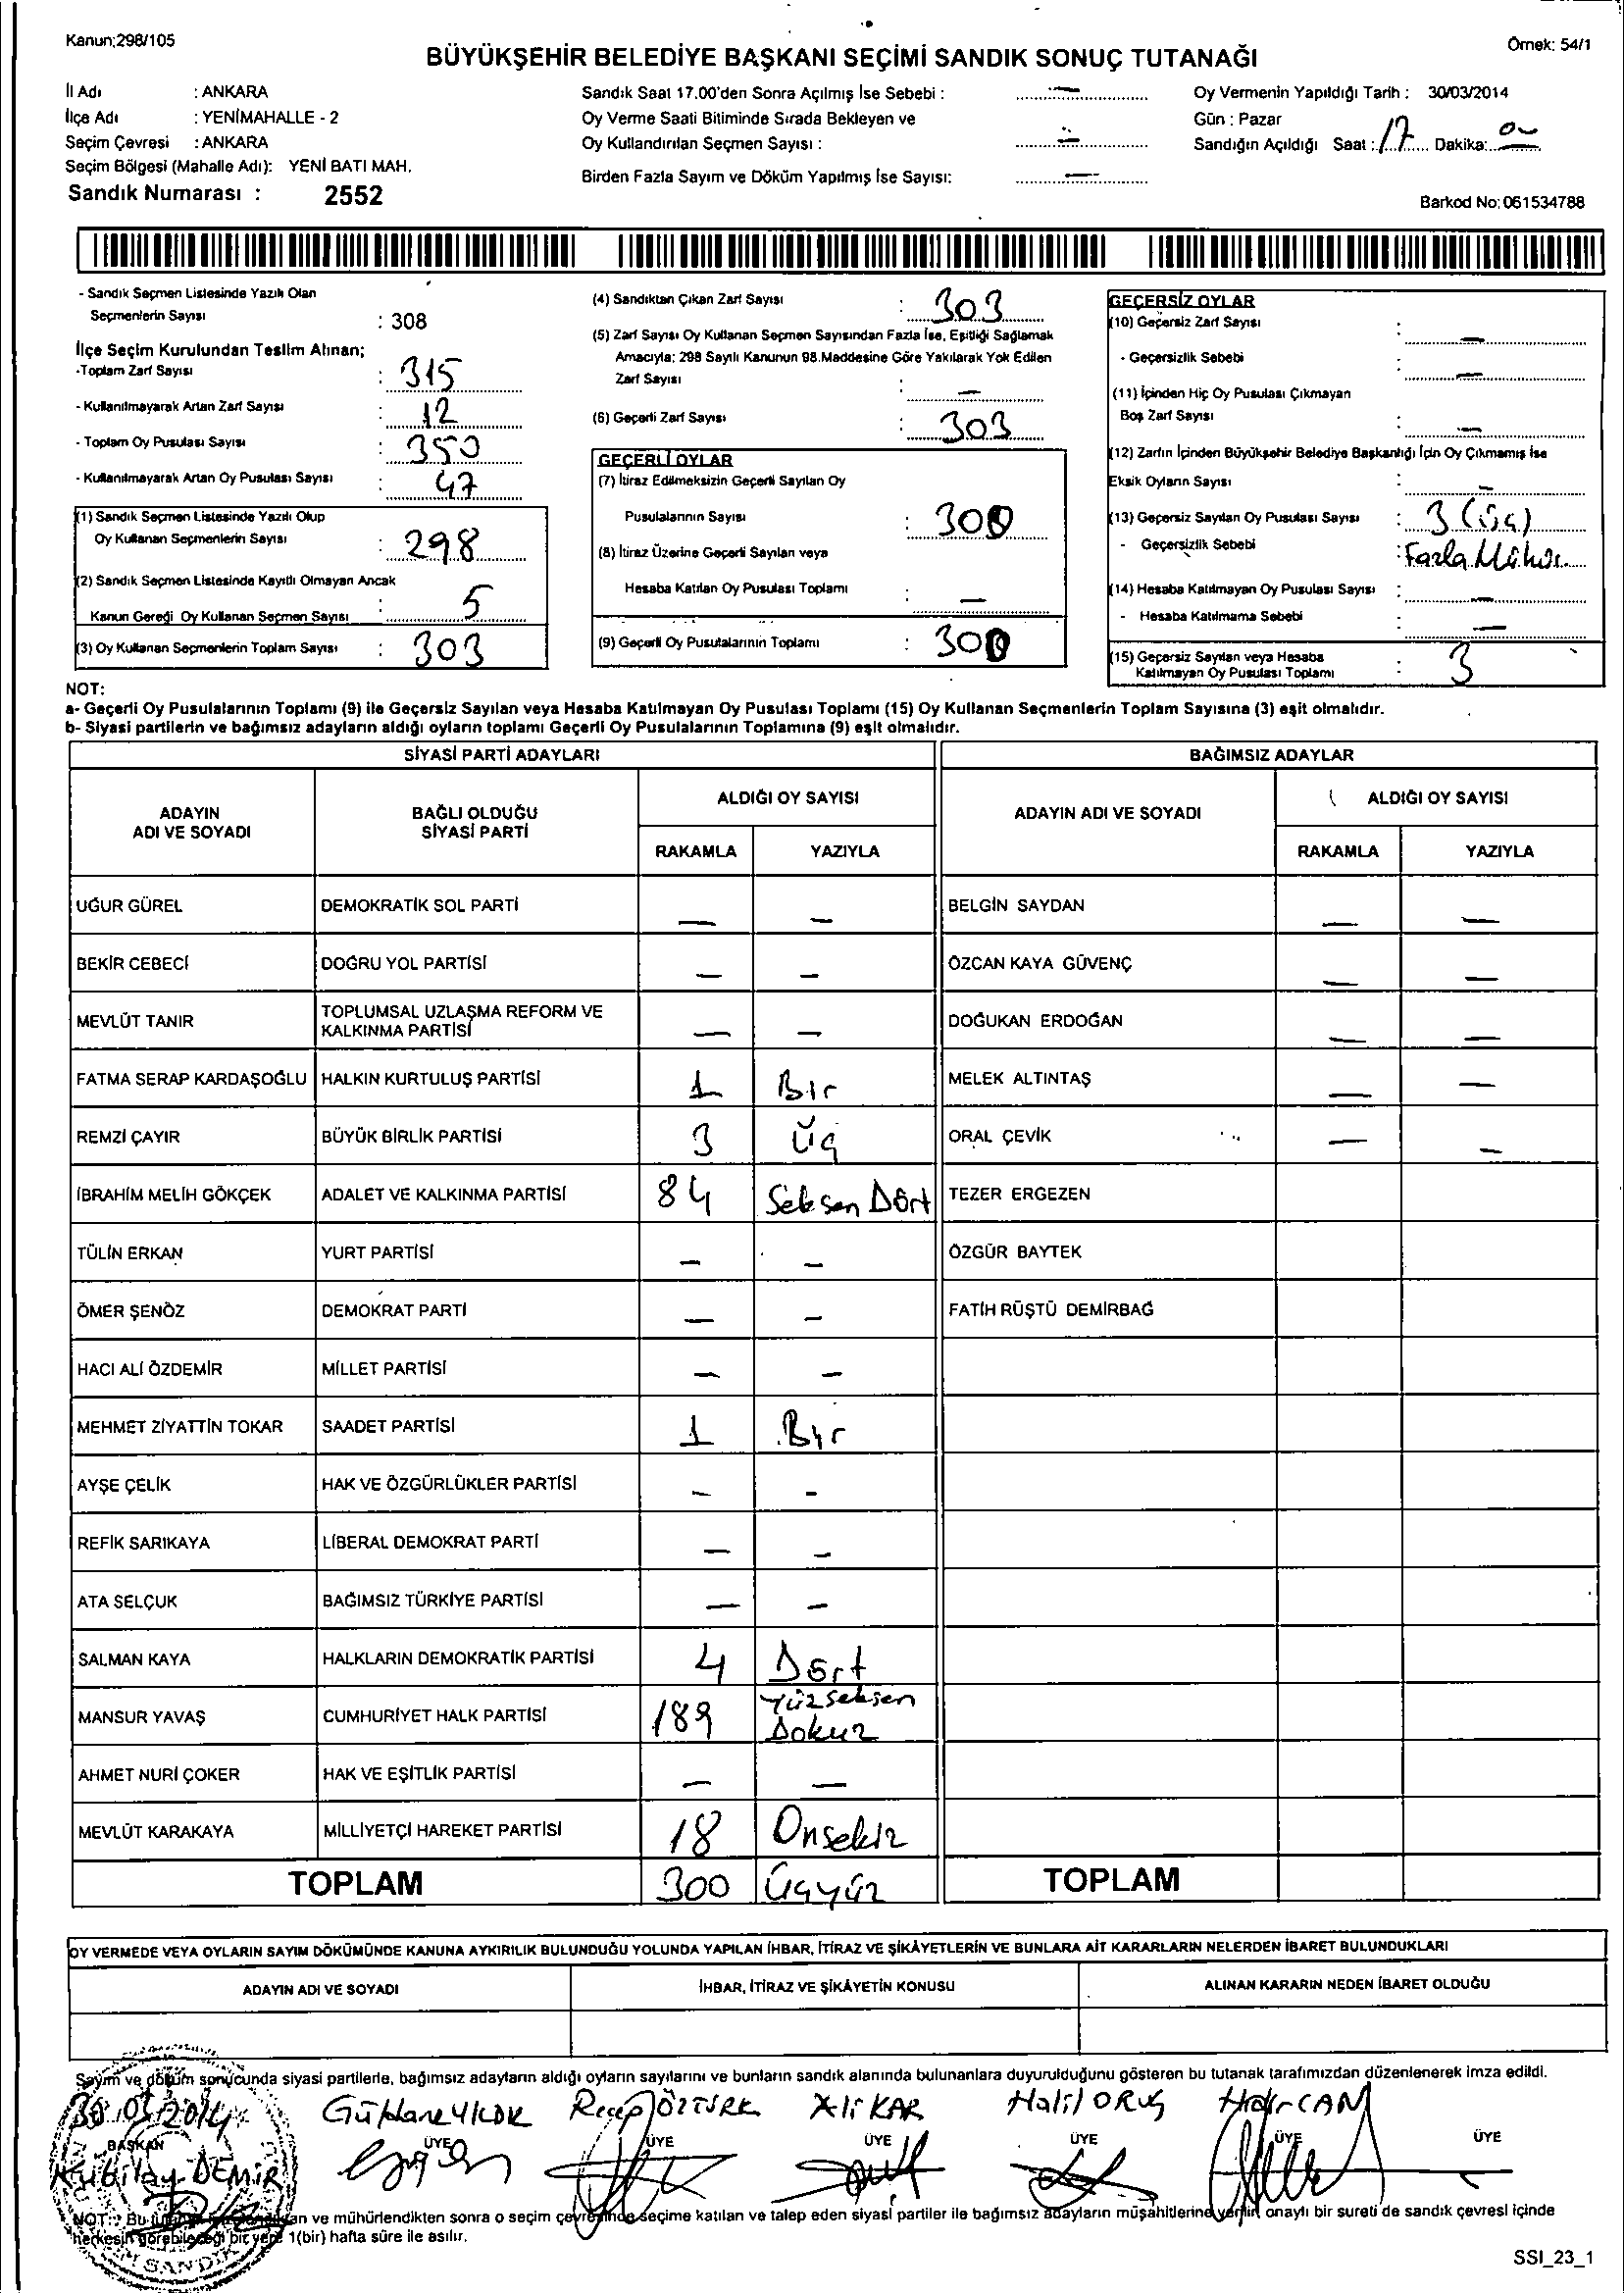 Kanun;298/105
Örnek: 54/1
BÜYÜKŞEHİR BELEDİYE BAŞKANI SEÇİMİ SANDIK SONUÇ TUTANAĞI
İl Adı : ANKARA
İlçe Adı : YENİMAHALLE - 2
Seçim Çevresi : ANKARA
Seçim Bölgesi (Mahalle Adı): YENİ BATI MAH.
Sandık Numarası : 2552
Sandık Saat 17.00'den Sonra Açılmış İse Sebebi : —
Oy Verme Saati Bitiminde Sırada Bekleyen ve
Oy Kullandırılan Seçmen Sayısı : —
Birden Fazla Sayım ve Döküm Yapılmış İse Sayısı: —
Oy Vermenin Yapıldığı Tarih : 30/03/2014
Gün : Pazar
Sandığın Açıldığı Saat : 17 Dakika:
Barkod No: 061534788
- Sandık Seçmen Listesinde Yazılı Olan
Seçmenlerin Sayısı : 308
İlçe Seçim Kurulundan Teslim Alınan;
-Toplam Zarf Sayısı : 315
- Kullanılmayarak Artan Zarf Sayısı : 12
- Toplam Oy Pusulası Sayısı : 350
- Kullanılmayarak Artan Oy Pusulası Sayısı : 47
(1) Sandık Seçmen Listesinde Yazılı Olup
Oy Kullanan Seçmenlerin Sayısı : 298
(2) Sandık Seçmen Listesinde Kayıtlı Olmayan Ancak
Kanun Gereği Oy Kullanan Seçmen Sayısı : 5
(3) Oy Kullanan Seçmenlerin Toplam Sayısı : 303
(4) Sandıktan Çıkan Zarf Sayısı : 303
(5) Zarf Sayısı Oy Kullanan Seçmen Sayısından Fazla İse, Eşitliği Sağlamak
Amacıyla; 298 Sayılı Kanunun 98.Maddesine Göre Yakılarak Yok Edilen
Zarf Sayısı : —
(6) Geçerli Zarf Sayısı : 303
GEÇERLİ OYLAR
(7) İtiraz Edilmeksizin Geçerli Sayılan Oy
Pusulalarının Sayısı : 300
(8) İtiraz Üzerine Geçerli Sayılan veya
Hesaba Katılan Oy Pusulası Toplamı : —
(9) Geçerli Oy Pusulalarının Toplamı : 300
GEÇERSİZ OYLAR
(10) Geçersiz Zarf Sayısı : —
- Geçersizlik Sebebi : —
(11) İçinden Hiç Oy Pusulası Çıkmayan
Boş Zarf Sayısı : —
(12) Zarfın İçinden Büyükşehir Belediye Başkanlığı İçin Oy Çıkmamış İse
Eksik Oyların Sayısı : —
(13) Geçersiz Sayılan Oy Pusulası Sayısı : 3 (Üç)
- Geçersizlik Sebebi : Fazla Mühür
(14) Hesaba Katılmayan Oy Pusulası Sayısı : —
- Hesaba Katılmama Sebebi : —
(15) Geçersiz Sayılan veya Hesaba
Katılmayan Oy Pusulası Toplamı : 3
NOT:
a- Geçerli Oy Pusulalarının Toplamı (9) ile Geçersiz Sayılan veya Hesaba Katılmayan Oy Pusulası Toplamı (15) Oy Kullanan Seçmenlerin Toplam Sayısına (3) eşit olmalıdır.
b- Siyasi partilerin ve bağımsız adayların aldığı oyların toplamı Geçerli Oy Pusulalarının Toplamına (9) eşit olmalıdır.
SİYASİ PARTİ ADAYLARI
BAĞIMSIZ ADAYLAR
ADAYIN ADI VE SOYADI
BAĞLI OLDUĞU SİYASİ PARTİ
ALDIĞI OY SAYISI
RAKAMLA YAZIYLA
ADAYIN ADI VE SOYADI
ALDIĞI OY SAYISI
RAKAMLA YAZIYLA
UĞUR GÜREL DEMOKRATİK SOL PARTİ — — BELGİN SAYDAN — —
BEKİR CEBECİ DOĞRU YOL PARTİSİ — — ÖZCAN KAYA GÜVENÇ — —
MEVLÜT TANIR TOPLUMSAL UZLAŞMA REFORM VE KALKINMA PARTİSİ — — DOĞUKAN ERDOĞAN — —
FATMA SERAP KARDAŞOĞLU HALKIN KURTULUŞ PARTİSİ 1 Bir MELEK ALTINTAŞ — —
REMZİ ÇAYIR BÜYÜK BİRLİK PARTİSİ 3 Üç ORAL ÇEVİK — —
İBRAHİM MELİH GÖKÇEK ADALET VE KALKINMA PARTİSİ 84 Seksen Dört TEZER ERGEZEN
TÜLİN ERKAN YURT PARTİSİ — — ÖZGÜR BAYTEK
ÖMER ŞENÖZ DEMOKRAT PARTİ — — FATİH RÜŞTÜ DEMİRBAĞ
HACI ALİ ÖZDEMİR MİLLET PARTİSİ — —
MEHMET ZİYATTİN TOKAR SAADET PARTİSİ 1 Bir
AYŞE ÇELİK HAK VE ÖZGÜRLÜKLER PARTİSİ — -
REFİK SARIKAYA LİBERAL DEMOKRAT PARTİ — —
ATA SELÇUK BAĞIMSIZ TÜRKİYE PARTİSİ — —
SALMAN KAYA HALKLARIN DEMOKRATİK PARTİSİ 4 Dört
MANSUR YAVAŞ CUMHURİYET HALK PARTİSİ 189 Yüzseksen Dokuz
AHMET NURİ ÇOKER HAK VE EŞİTLİK PARTİSİ — —
MEVLÜT KARAKAYA MİLLİYETÇİ HAREKET PARTİSİ 18 Onsekiz
TOPLAM 300 Üçyüz TOPLAM
OY VERMEDE VEYA OYLARIN SAYIM DÖKÜMÜNDE KANUNA AYKIRILIK BULUNDUĞU YOLUNDA YAPILAN İHBAR, İTİRAZ VE ŞİKÂYETLERİN VE BUNLARA AİT KARARLARIN NELERDEN İBARET BULUNDUKLARI
ADAYIN ADI VE SOYADI İHBAR, İTİRAZ VE ŞİKÂYETİN KONUSU ALINAN KARARIN NEDEN İBARET OLDUĞU
Sayım ve döküm sonucunda siyasi partilerle, bağımsız adayların aldığı oyların sayılarını ve bunların sandık alanında bulunanlara duyurulduğunu gösteren bu tutanak tarafımızdan düzenlenerek imza edildi.
30.03.2014 Recep ÖZTÜRK Ali KAR Halil ORUÇ CAN
BAŞKAN ÜYE ÜYE ÜYE ÜYE ÜYE ÜYE
Kubilay DEMİR
NOT: Bu ve mühürlendikten sonra o seçim çevresinde seçime katılan ve talep eden siyasi partiler ile bağımsız adayların müşahitlerine verilir, onaylı bir sureti de sandık çevresi içinde
herkesin görebileceği bir yere 1(bir) hafta süre ile asılır.
SANDIK
SSI_23_1